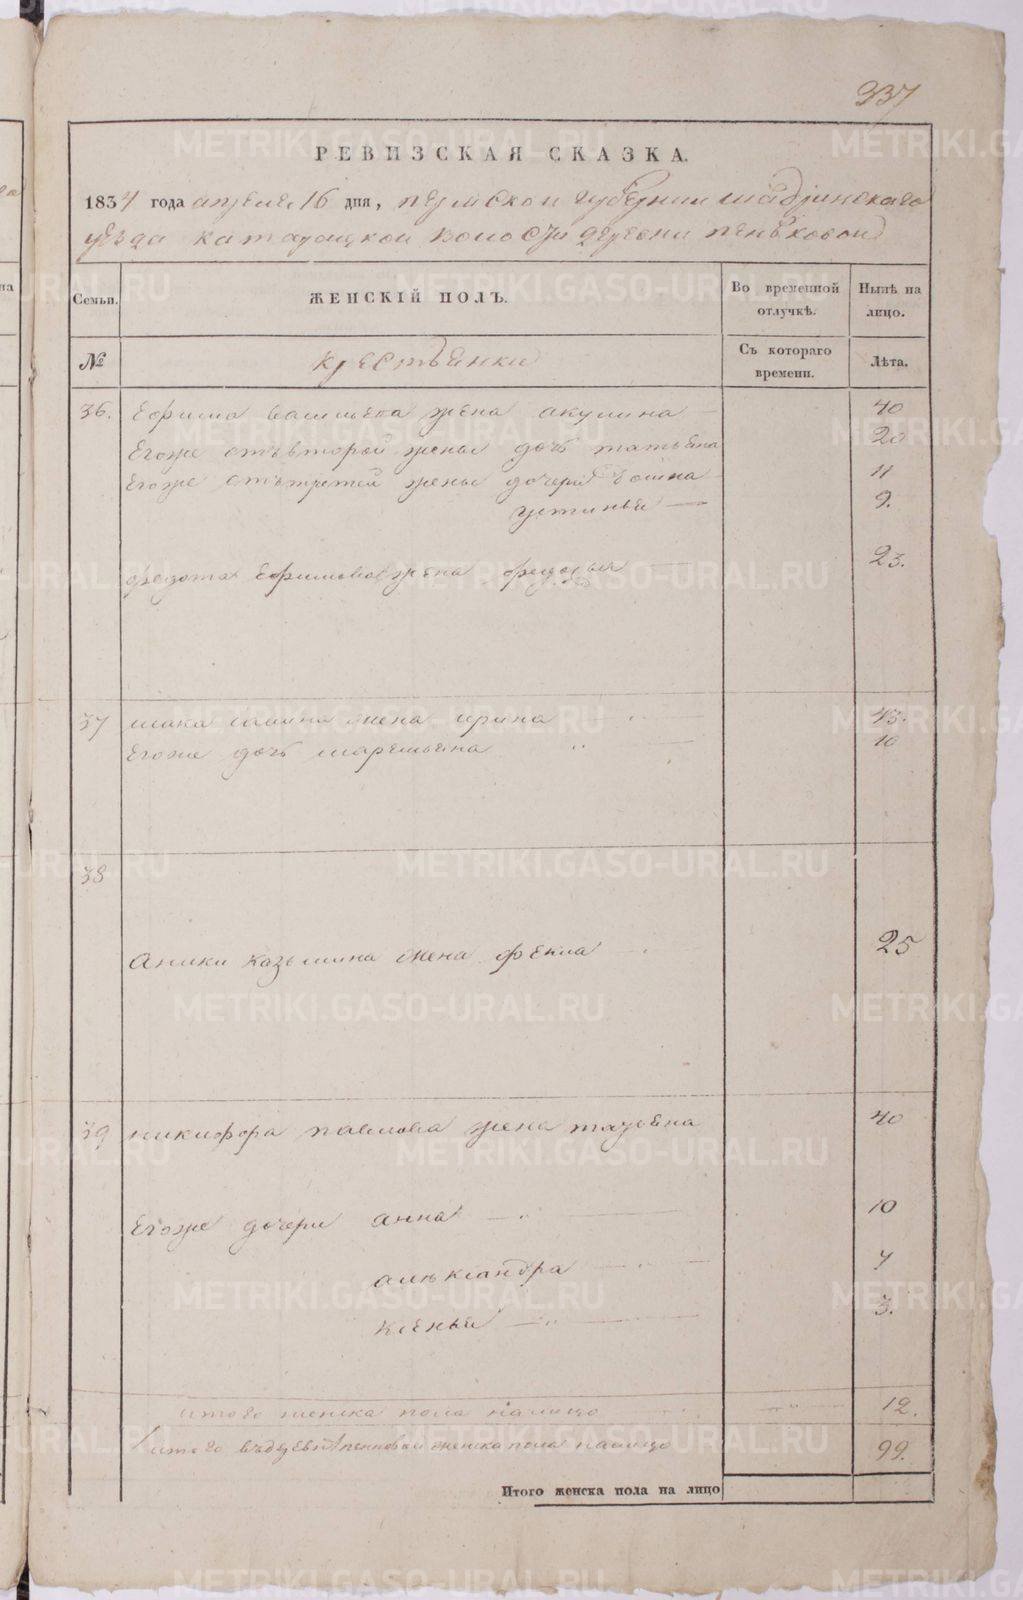 337
РЕВИЗСКАЯ СКАЗКА.
1834 года апреля 16 дня, пермской губернии шадринскаго
уезда катайской волости деревни пеньковой
Семьи. ЖЕНСКІЙ ПОЛЪ. Во временной отлучкѣ. Нынѣ на лицо.
№ крестьянки Съ котораго времени. Лѣта.
36. Ефима васильева жена акулина 40
Егоже отъвторой жены дочь татьяна 20
Егоже отътретей жены дочери 11
устинья 9.
федота Ефимова жена федосья 23.
37 жена ирина 43.
Егоже дочь маремьяна 10
38
Аники казьмина жена фекла 25
39 никифора павлова жена татьяна 40
Егоже дочери анна 10
александра 7
ксенья 3.
итого женска пола налицо 12.
итого въдеревне пенковой женска пола налицо 99.
Итого женска пола на лицо
METRIKI.GASO-URAL.RU